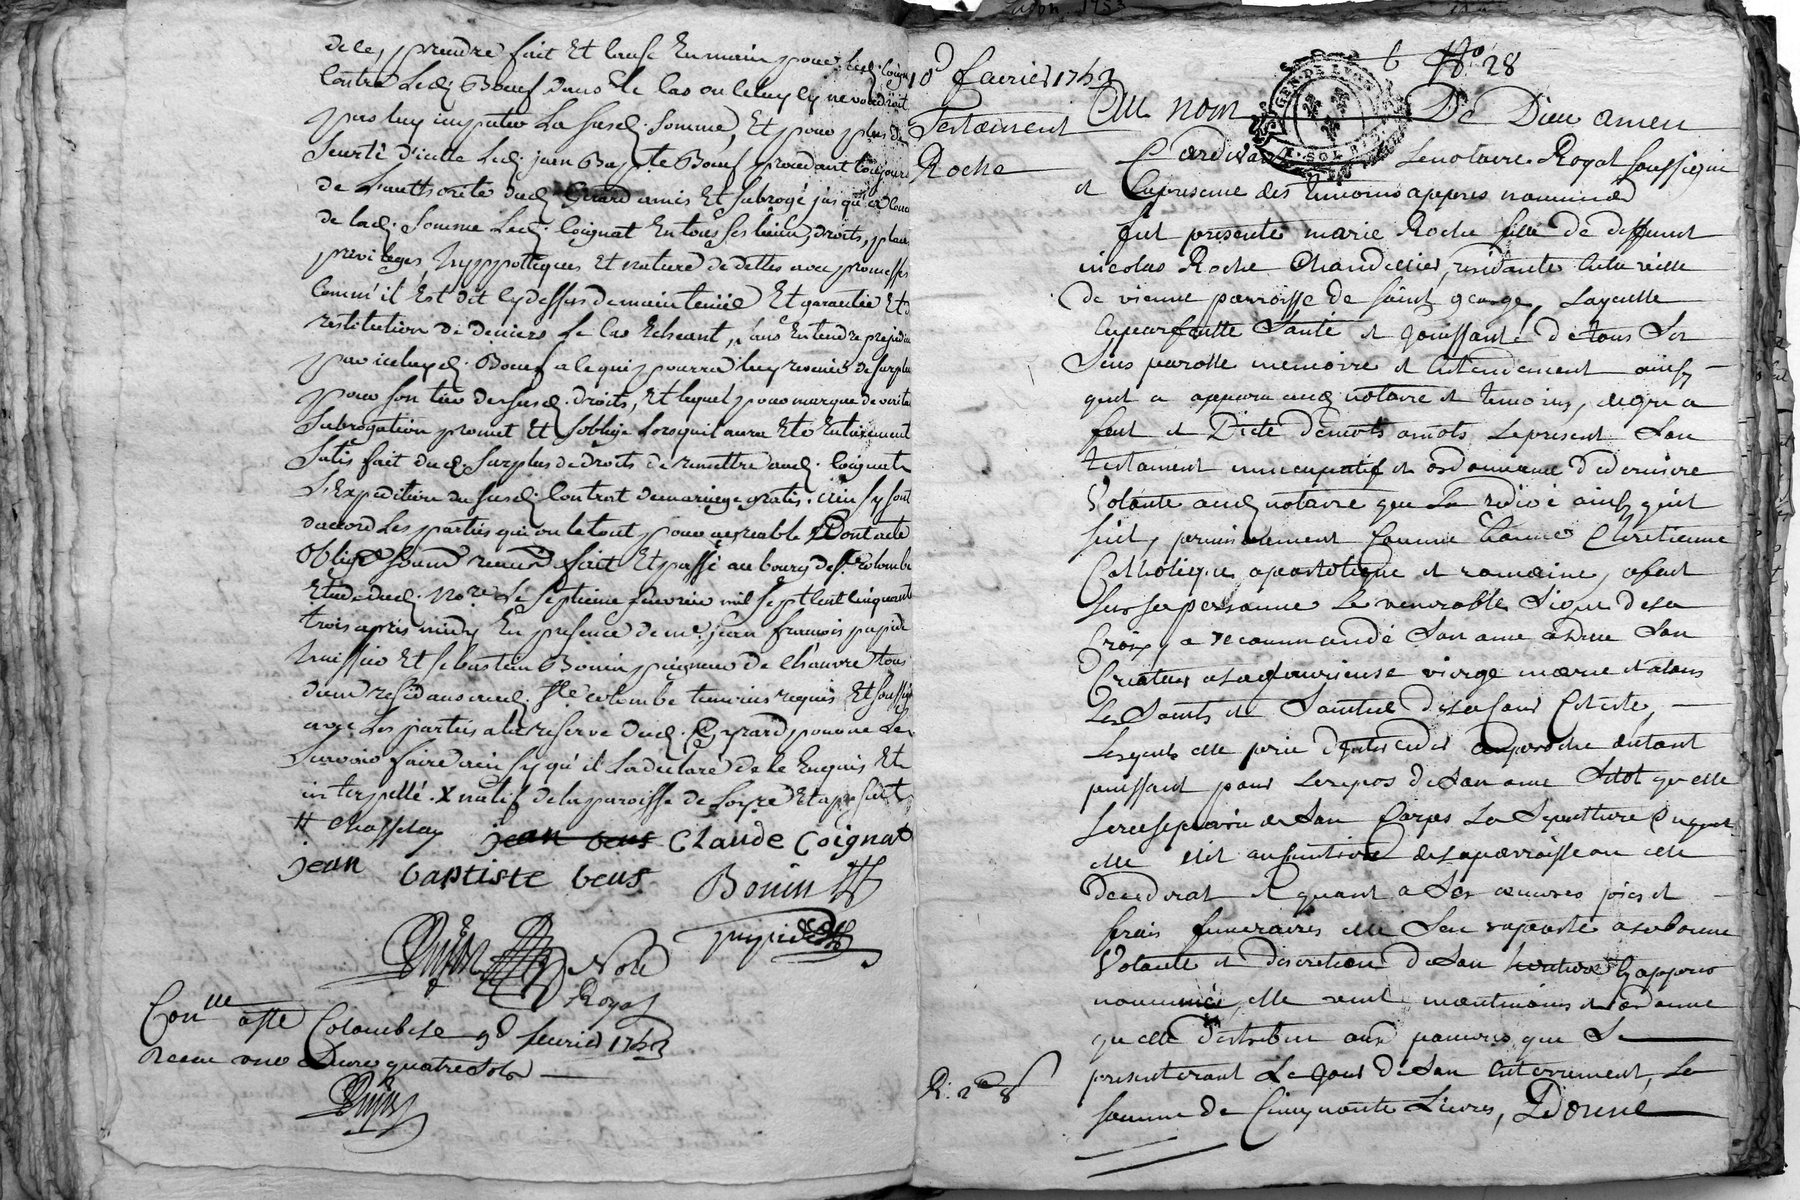 de les prendre fait Et Cause En main pour led. Coign
Contre Led. Boeuf dans Le Cas ou celuy cy ne voudroit
pas luy imputer La susd. Somme, Et pour plus de
Seurté d'icelle Led. jean Bapte Boeuf procedant toujours
de L'authorité dud. Girard a mis Et subrogé jusqu'a conc
de lad. Somme Led. Coignat En tous ses lieux, droits, place
privileges, hyppoteques Et nature de dettes avec promesse
Comm'il Est dit cy dessus de maintenüe Et garantie Et
restitution de deniers Le Cas Echeant, sans Entendre prejudicier
par iceluy d. Boeuf a ce qui pourra luy revenir de surplus
pour son tiers des susd. droits, Et lequel pour marque de veritable
Subrogation promet Et S'oblige Lorsquil aura Eté Entierement
Satisfait dud. Surplus de droits de remettre aud. Coignat
L'Expedition du susd. Contrat de mariage gratis. ainsy sont
d'accord Les parties qui ont le tout pour agreable Dont acte
obligé Soumis renoncé fait Et passé au bourg de Ste Colombe
Etude dud. Nore Le Septieme fevrier mil Sept Cent Cinquante
trois apres midy En presence de me. jean francois pupied
huissier Et Sebastien Bonin peigneur de Chanvre tous
deux residans aud. Ste Colombe temoins requis Et soussignés
avec Les parties a la reserve dud. Gyrard pour ne Le
Scavoir faire ainsy qu'il L'a declaré de ce Enquis Et
interpellé. X natif de la paroisse de Loyre Et apr
# Chasselay jean beus Claude Coignat
jean baptiste beus Bonin
pupied
Nore
Royal
Conlle a Ste Colombe Le 9d fevrier 1753
Receu une Livre quatre Sols
Tabon 1753
10d favrier 1753
Testament
Roche
No 28
Au nom De Dieu amen
GEN. DE LYON
SOL
Pardevant Le notaire Royal Soussigné
et En presence des temoins appres nommés
fut presente marie Roche fille de deffunt
nicolas Roche Chandellier, residante En la ville
de vienne parroisse de Saint george, Laquelle
En parfaitte Santé et jouissante de tous Ses
Sens parolle memoire et Entendement ainsy
quil a apparu aud. notaire et temoins, de gré a
fait et Dicté de mots a mots Le present Son
testament nuncupatif et ordonnance de derniere
Volonté aud. notaire que La redigé ainsy quil
Suit, premierement Comme bonne Chretienne
Catholique apostolique et romaine, a fait
Sur Sa personne Le venerable Signe de la
Croix, a recommandé Son ame a Dieu Son
Createur a La glorieuse vierge marie et a tous
Les Saints et Saintes de La Cour Celeste,
Lesquels elle prie d'interceder auproche du tout
puissant pour Le repos de Son ame Sitot qu'elle
Sera Separée de Son Corps La Sepulture duquel
elle Elit au Cimetiere de La parroisse ou elle
decedera Et quant a Ses œuvres pies et
frais funeraires elle S'en rapporte a La bonne
Volonté et discretion de Son heritiere Cy appres
nommée, elle veut neantmoins et ordonne
qu'elle distribue aux pauvres que Se
presenteront Le jour de Son Enterrement, La
Somme de Cinquante Livres, Donne